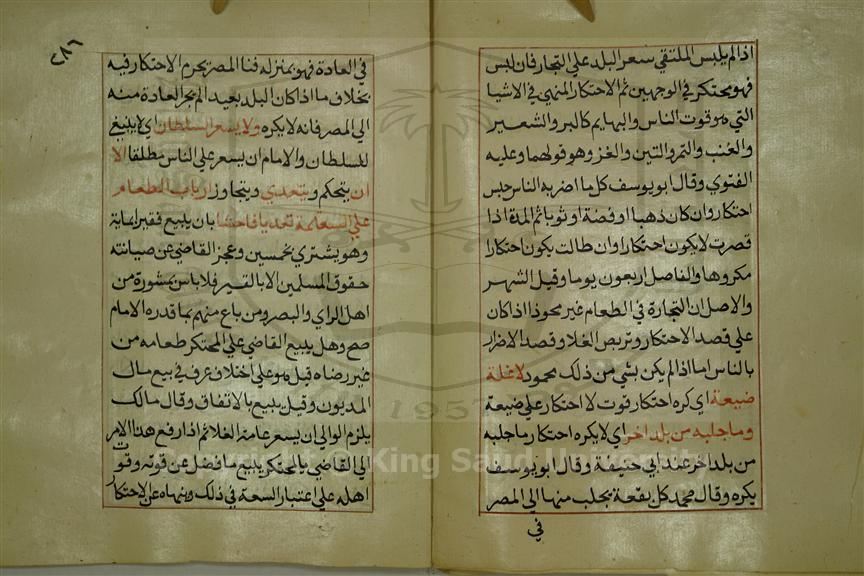 اذا لم يلبس الملتقي سعر البلد علي التجار فان لبس
فهو محتكر في الوجهين ثم الاحتكار المنهي في الاشيا
التي هو قوت الناس والبهايم كالبر والشعير
والعنب والتمر والتين والغز وهو قولهما وعليه
الفتوي وقال ابو يوسف كل ما اضر به الناس حبس
احتكار وان كان ذهبا او فضة او ثوبا ثم المدة اذا
قصرت لا يكون احتكارا وان طالت يكون احتكارا
مكروها والفاصل اربعون يوما وقيل الشهر
والاصل ان التجارة في الطعام غير محوذ اذا كان
علي قصد الاحتكار وتربص الغلا وقصد الاضرار
بالناس اما اذا لم يكن بشي من ذلك محمود لا غلة
ضيعة اي كره احتكار قوت لا احتكار علي ضيعة
وما جلبه من بلد اخر اي لا يكره احتكار ما جلبه
من بلد اخر عند ابي حنيفة وقال ابو يوسف
يكره وقال محمد كل بقعة يجلب منها الي المصر
في
٢٨٦
في العادة فهو بمنزله فنا المصر يحرم الاحتكار فيه
بخلاف ما اذا كان البلد بعيد الم يجر العادة منه
الي المصر فانه لا يكره ولا يسعر السلطان اي لا ينبغ
للسلطان والامام ان يسعر علي الناس مطلقا الا
ان يتحكم ويتعدي ويتجاوز ارباب الطعام
علي السعر تعديا فاحشا بان يبيع فقيرا بماية
وهو يشتري بخمسين وعجز القاضي عن صيانته
حقوق المسلمين الا بالتسعير فلا باس بمشورة من
اهل الراي والبصر ومن باع منهم بما قدره الامام
صح وهل يبيع القاضي علي المحتكر طعامه من
غير رضاه قيل هو علي اختلاف عرف في بيع مال
المديون وقيل يبيع بالاتفاق وقال مالك
يلزم الوالي ان يسعر عامة الغلا ثم اذا رفع هذا الامر
الي القاضي يامر المحتكر ببيع ما فضل عن قوته وقوت
اهله علي اعتبار السعة في ذلك وينهاه عن الاحتكار
Copyright © King Saud University
1957